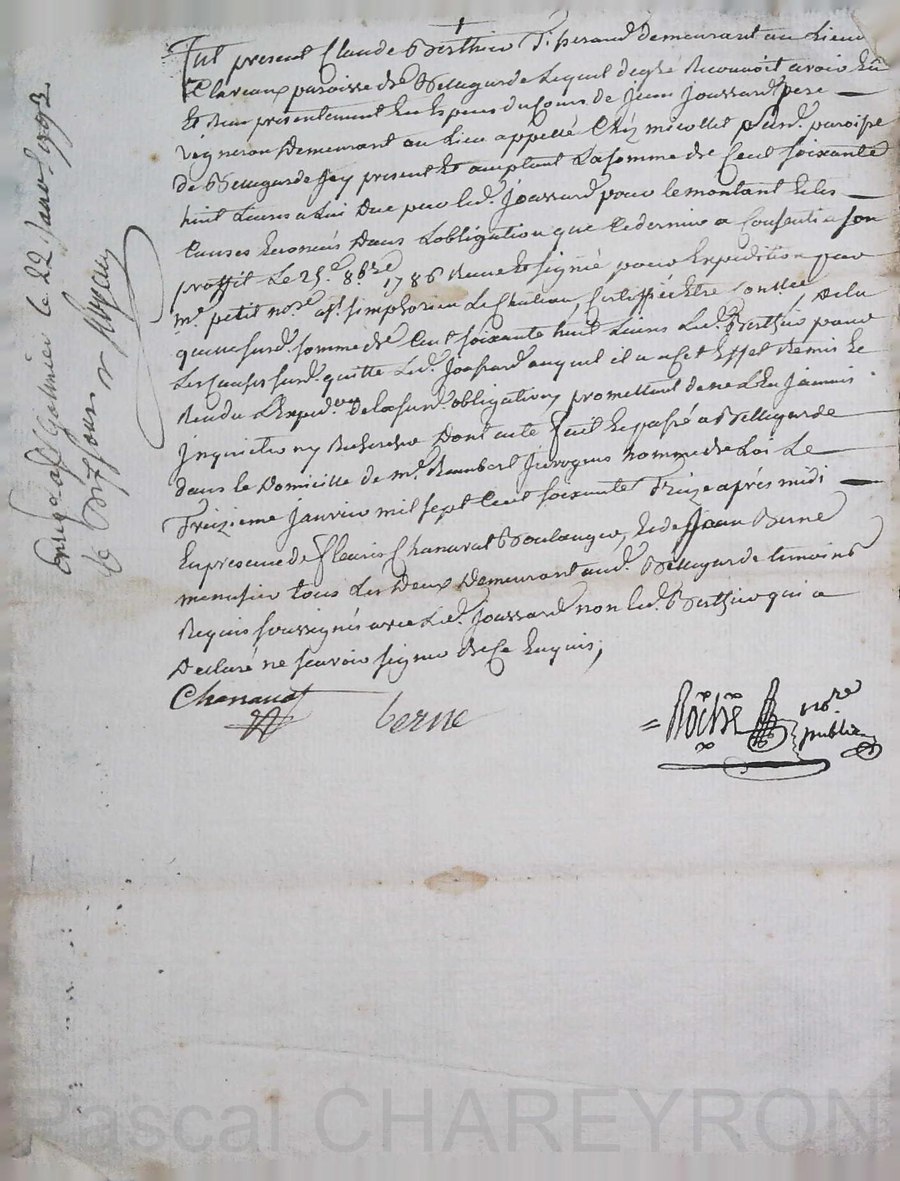 Fut présent Claude Berthier Tisserand demeurant au Lieu
Clavaux paroisse de Bellegarde Lequel de gré Reconnoit avoir Eû
et Reçu présentement En Espèces du Cours de Jean Joassard père
vigneron Demeurant au Lieu appellé Chéz micollet susd. paroisse
de Bellegarde Jcy présent et acceptant La somme de Cent soixante
huit Livres a Lui Due par led. Joassard pour le montant et les
Causes Enoncés Dans L'obligation que Ce dernier a Consenti a son
proffit Le 25e. 8bre 1786 Reçue et signée pour Expédition par
me. petit nore. a St. simphorien Le Chateau, Controllée,
quelle susd. somme de Cent soixante huit Livres Led. Berthier pour
Les Causes susd. quitte Led. Joassard auquel il a a cet Effet Remis et
Rendu L'Expedon. de la susd. obligation promettant de ne L'En Jamais
Jnquieter ny Rechercher Dont acte fait et passé a Bellegarde
dans le Domicille de me. Raimbert Le
Treizieme Janvier mil sept Cent soixante Treize après midi
En présence de fleurie Chanavat Boulanger, et de Jean Berne
menusier tous Les Deux Demeurant aud. Bellegarde temoins
Requis soussignés avec Led. Joassard non led. Berthier qui a
Declaré ne scavoir signer de Ce Enquis,
Chanavat
berne
Roche nore
public
Enreg. a St Galmier le 22 Janv. 1793
Pascal CHAREYRON